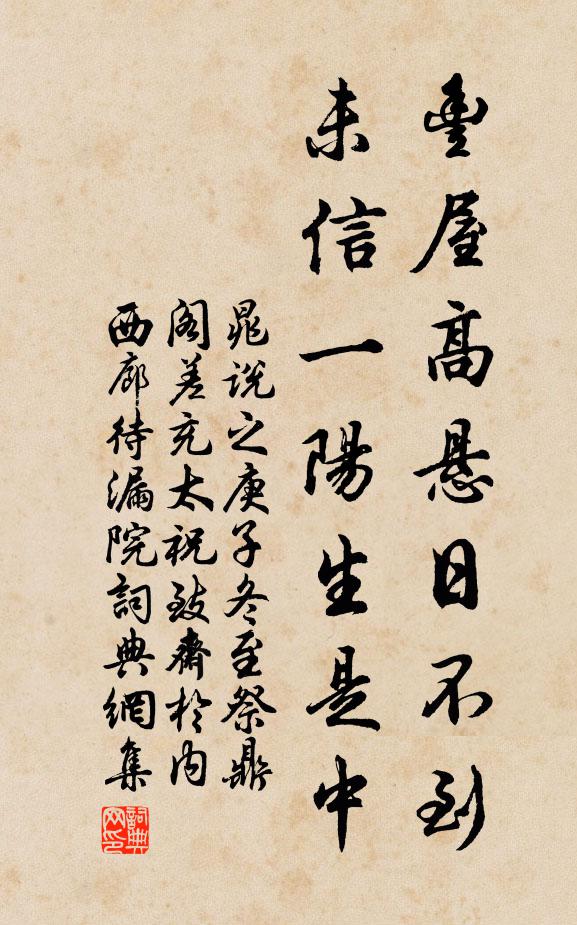 豐屋高悬日不到
未信一陽生是中
晁說之庚子冬至祭鼎
阁差充太祝致齋於内
西廊待漏院詞典網集
詞典
网印